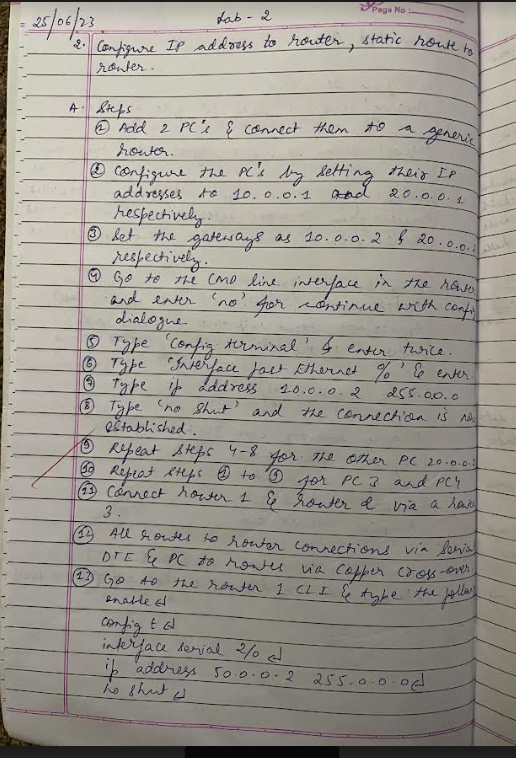 25/06/23
Lab - 2
Page No :
2. Configure IP address to router, static route to
router.
A. Steps
① Add 2 PC's & connect them to a generic
router.
② Configure the PC's by setting their IP
addresses to 10.0.0.1 and 20.0.0.1
respectively.
③ Set the gateways as 10.0.0.2 & 20.0.0.2
respectively.
④ Go to the CMD line interface in the router
and enter 'no' for continue with config
dialogue.
⑤ Type 'config terminal' & enter twice.
⑥ Type 'Interface fast Ethernet %' & enter.
⑦ Type ip address 10.0.0.2 255.0.0.0
⑧ Type 'no shut' and the connection is no
established.
⑨ Repeat steps 4-8 for the other PC 20.0.0.
⑩ Repeat steps ① to ⑨ for PC 3 and PC4
⑪ Connect router 1 & router 2 via a route
3.
⑫ All routes to router connections via Serial
DTE & PC to routes via copper cross-over.
⑬ Go to the router 1 CLI & type the follow
enable ↵
config t ↵
interface serial 2/0 ↵
ip address 50.0.0.2 255.0.0.0 ↵
no shut ↵